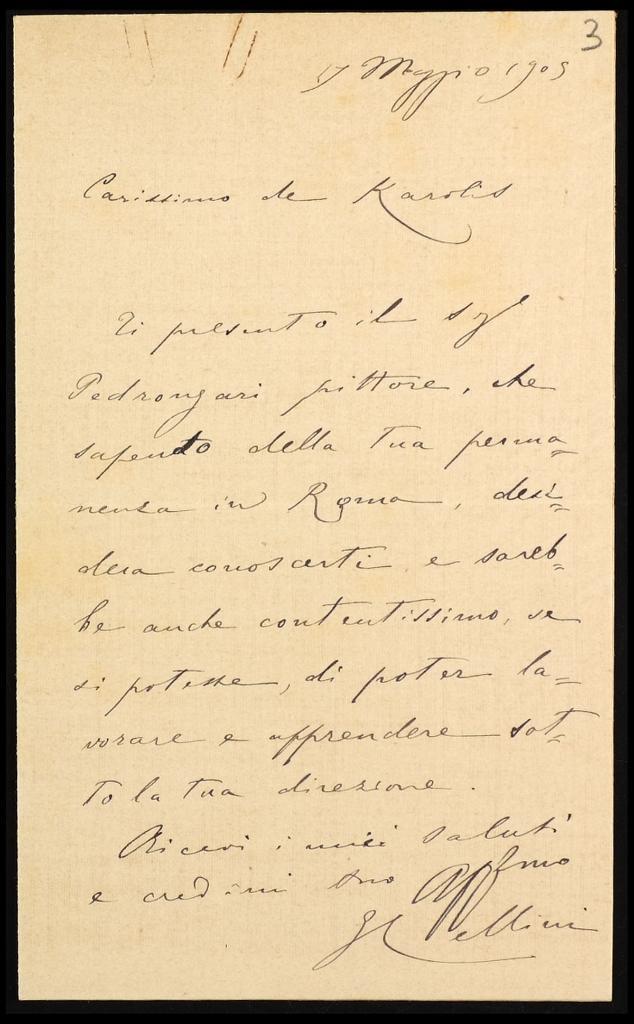 3
17 Maggio 1905
Carissimo de Karolis
Ti presento il sigr
Pedrongari pittore, che
sapendo della tua perma=
nenza in Roma, desi=
dera conoscerti e sareb=
be anche contentissimo, se
si potesse, di poter la=
vorare e apprendere sot=
to la tua direzione.
Ricevi i miei saluti
e credimi tuo Affmo
G Cellini